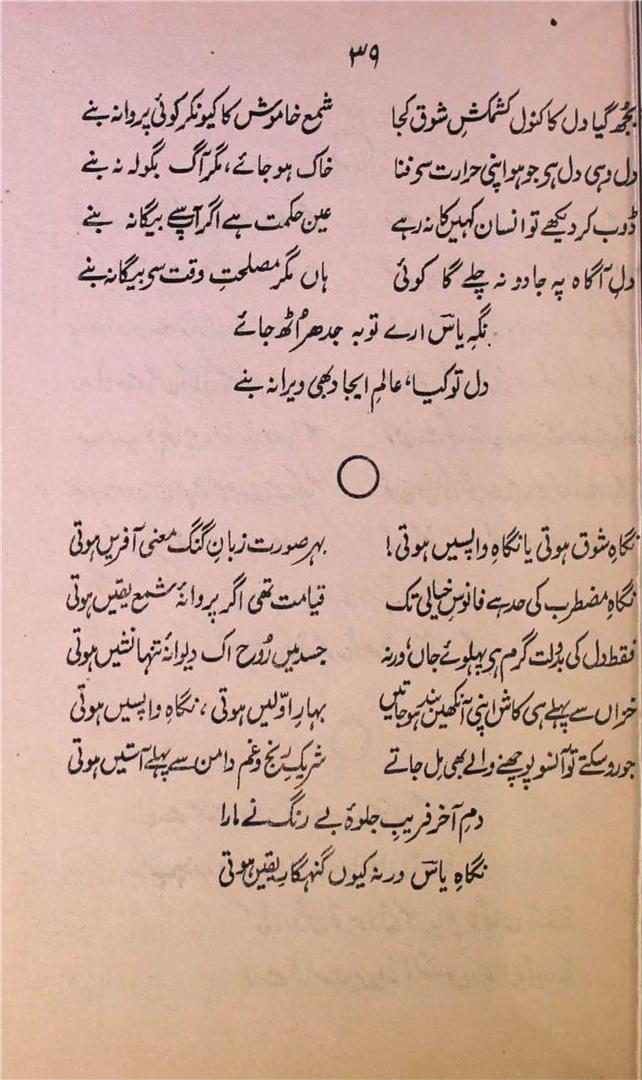 ۳۹
بجھ گیا دل کا کنول کشمکشِ شوق کجا شمع خاموش کا کیونکر کوئی پروانہ بنے
دل وہی دل ہی جو ہو اپنی حرارت سی فنا خاک ہو جائے، مگر آگ بگولہ نہ بنے
ڈوب کر دیکھے تو انسان کہیں کا نہ رہے عین حکمت ہے اگر آپ سے بیگانہ بنے
دلِ آگاہ پہ جادو نہ چلے گا کوئی ہاں مگر مصلحتِ وقت سی بیگانہ بنے
نگہِ یاسؔ ارے توبہ جدھر اُٹھ جائے
دل تو کیا، عالمِ ایجاد بھی ویرانہ بنے
نگاہِ شوق ہوتی یا نگاہِ واپسیں ہوتی! بہر صورت زبانِ گنگ معنی آفریں ہوتی
نگاہِ مضطرب کی حد ہے فانوسِ خیالی تک قیامت تھی اگر پروانۂ شمع یقیں ہوتی
فقط دل کی بدُلت گرم ہی پہلوئے جاں، ورنہ جسد میں رُوح اک دیوانۂ تنہا نشیں ہوتی
خزاں سے پہلے ہی کاش اپنی آنکھیں بند ہو جاتیں بہارِ اوّلیں ہوتی، نگاہِ واپسیں ہوتی
جو رو سکتے تو آنسو پوچھنے والے بھی مِل جاتے شریکِ رنج و غم دامن سے پہلے آستیں ہوتی
دمِ آخر فریبِ جلوۂ بے رنگ نے مارا
نگاہِ یاسؔ ورنہ کیوں گنہگارِ یقیں ہوتی